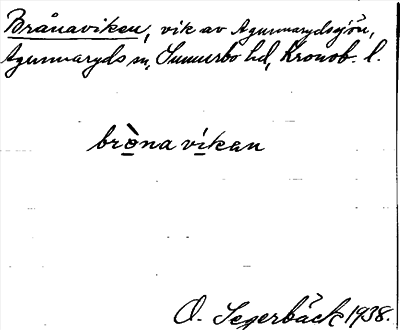 Brånaviken, vik av Agunnarydsjön,
Agunnaryds sn, Sunnerbo hd, Kronob. l.
brò̱na ví̱kan
O. Segerbäck 1938.